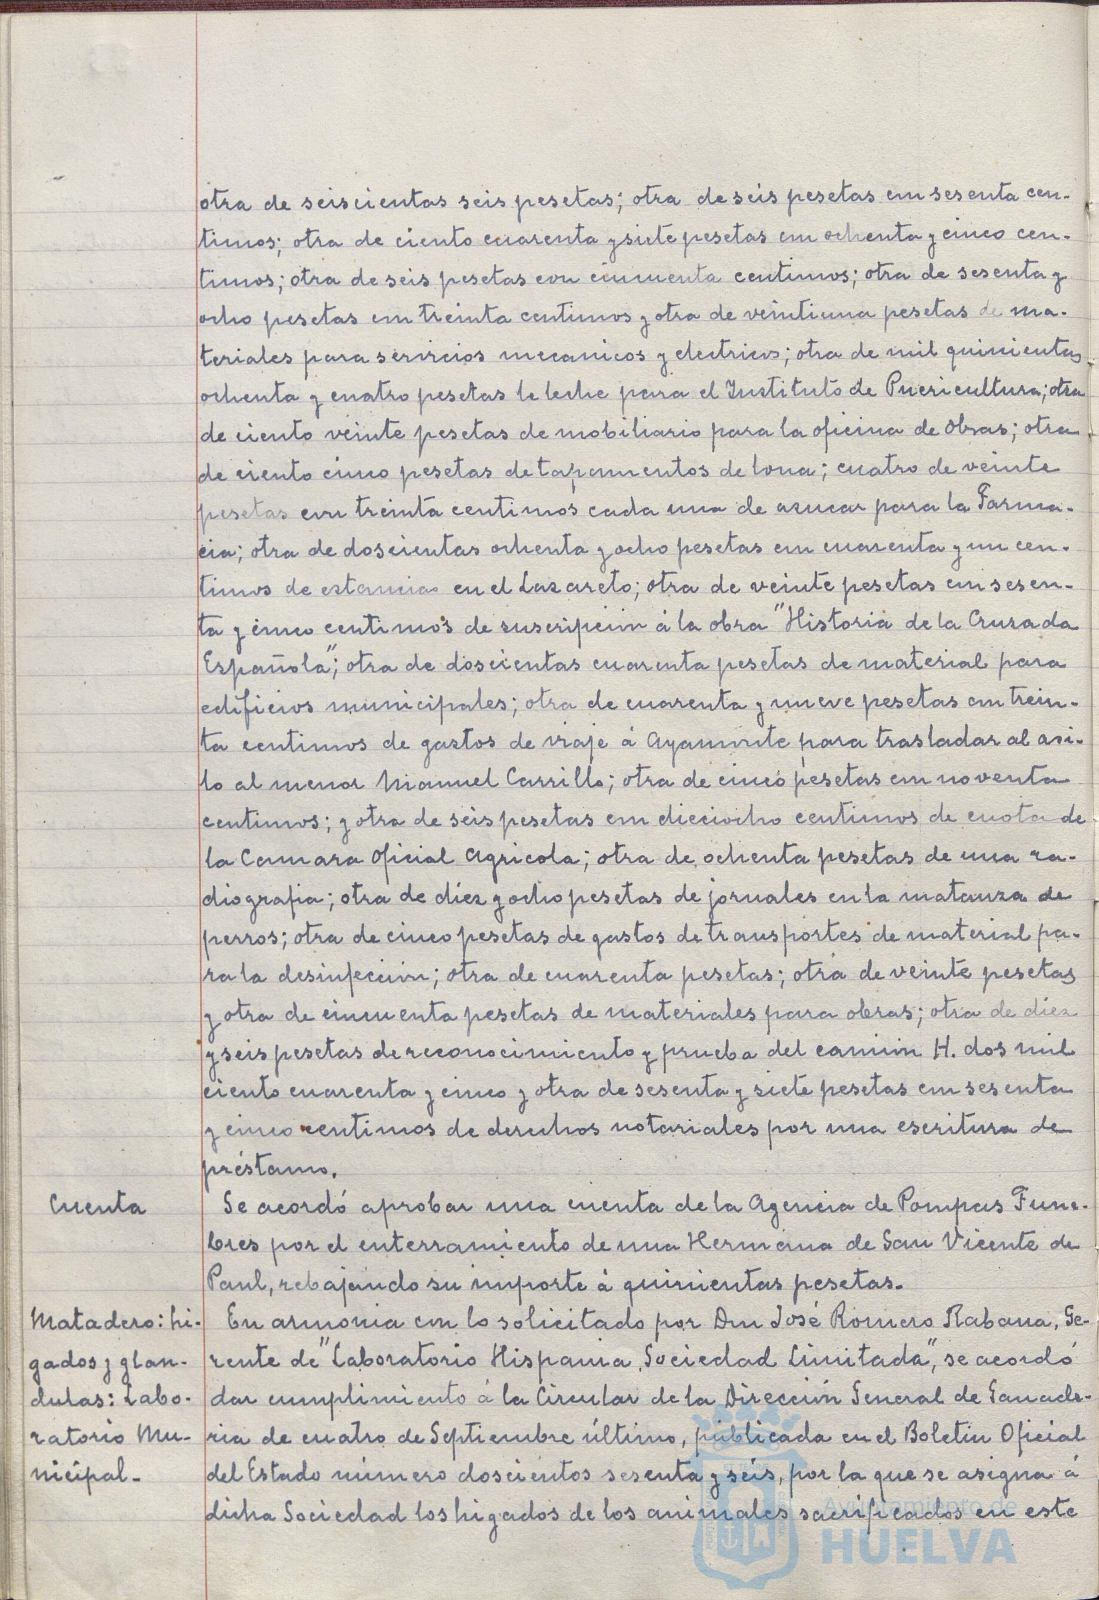 otra de seiscientas seis pesetas; otra de seis pesetas con sesenta cen-
timos; otra de ciento cuarenta y siete pesetas con ochenta y cinco cen-
timos; otra de seis pesetas con cincuenta centimos; otra de sesenta y
ocho pesetas con treinta centimos y otra de veintiuna pesetas de ma-
teriales para servicios mecanicos y electricos; otra de mil quinientas
ochenta y cuatro pesetas de leche para el Instituto de Puericultura; otra
de ciento veinte pesetas de mobiliario para la oficina de Obras; otra
de ciento cinco pesetas de tapamentos de lona; cuatro de veinte
pesetas con treinta centimos cada una de azucar para la Farma-
cia; otra de doscientas ochenta y ocho pesetas con cuarenta y un cen-
timos de estancias en el Lazareto; otra de veinte pesetas con sesen-
ta y cinco centimos de suscripción á la obra "Historia de la Cruzada
Española"; otra de doscientas cuarenta pesetas de material para
edificios municipales; otra de cuarenta y nueve pesetas con trein-
ta centimos de gastos de viaje á Ayamonte para trasladar al asi-
lo al menor Manuel Carrillo; otra de cinco pesetas con noventa
centimos; y otra de seis pesetas con dieciocho centimos de cuota de
la Camara Oficial Agricola; otra de ochenta pesetas de una ra-
diografia; otra de diez y ocho pesetas de jornales en la matanza de
perros; otra de cinco pesetas de gastos de transportes de material pa-
ra la desinfección; otra de cuarenta pesetas; otra de veinte pesetas
y otra de cincuenta pesetas de materiales para obras; otra de diez
y seis pesetas de reconocimiento y prueba del camión H. dos mil
ciento cuarenta y cinco y otra de sesenta y siete pesetas con sesenta
y cinco centimos de derechos notariales por una escritura de
préstamo.
Cuenta
Se acordó aprobar una cuenta de la Agencia de Pompas Fune-
bres por el enterramiento de una Hermana de San Vicente de
Paul, rebajando su importe á quinientas pesetas.
Matadero: hi-
gados y glan-
dulas: Labo-
ratorio Mu-
nicipal.-
En armonia con lo solicitado por Don José Romero Rabana, Ge-
rente de "Laboratorio Hispania, Sociedad Limitada", se acordó
dar cumplimiento á la Circular de la Dirección General de Ganade-
ria de cuatro de Septiembre último, publicada en el Boletin Oficial
del Estado número doscientos sesenta y seis, por la que se asigna á
dicha Sociedad los higados de los animales sacrificados en este
Ayuntamiento de
HUELVA